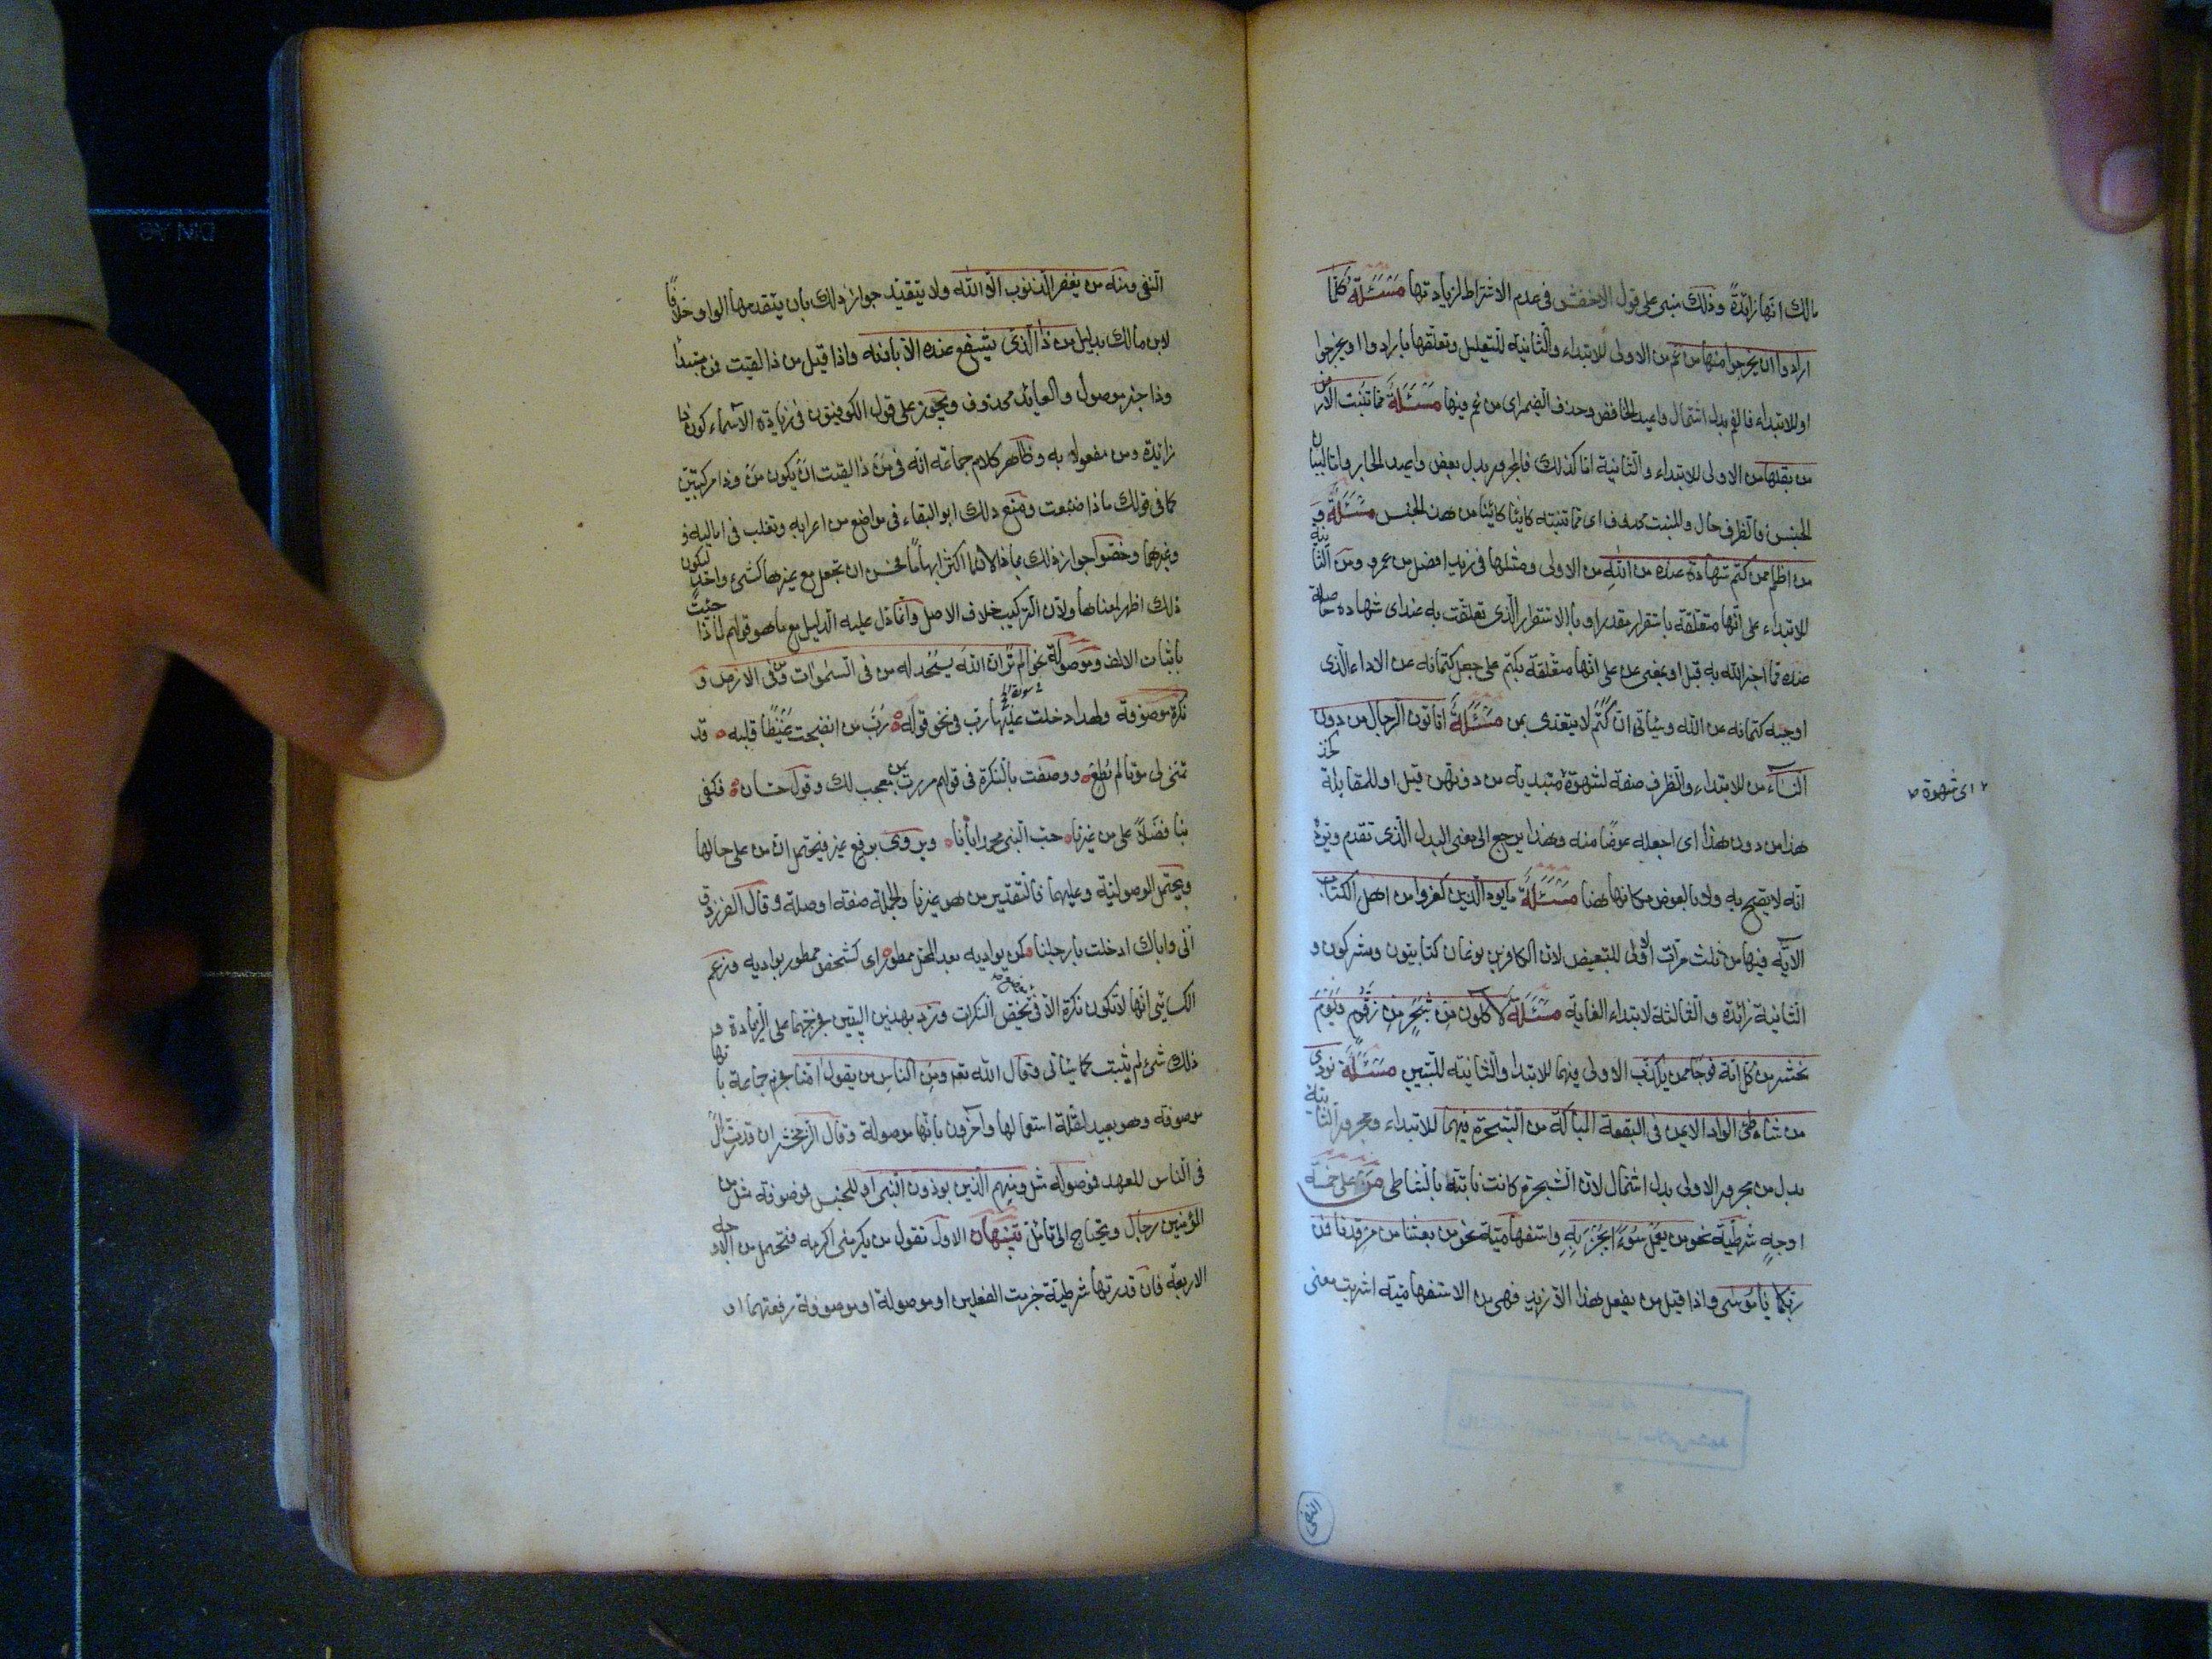 مالك انها زائدة وذلك مبنى على قول الاخفش فى عدم الاشتراط لزيادتها مسئلة كلما
ارادوا ان يخرجوا منها من غم من الاولى للابتداء والثانية للتعليل وتعلقها بارادوا او بيخرجوا
او للابتداء فالغم بدل اشتمال واعيد الخافض وحذف الضمير اى من غم فيها مسئلة مما تنبت الارض
من بقلها من الاولى للابتداء والثانية اما كذلك فالمجرور بدل بعض واعيد الجار واما لبيان
الجنس فالظرف حال والمنبت محذوف اى مما تنبته كائنا من هذا الجنس مسئلة و
من اظلم ممن كتم شهادة عنده من الله من الاولى مثلها فى زيد افضل من عمرو ومن الثانية
للابتداء على انها متعلقة باستقرار مقدر او بالاستقرار الذى تعلقت به عند اى شهادة حاصلة
عنده مما اخبر الله به قيل او بمعنى عن على انها متعلقة بكتم على جعل كتمانه عن الاداء الذى
اوجبه كتمانه عن الله وسيأتى ان كتم لا يتعدى بمن مسئلة انكم لتاتون الرجال شهوة من دون
النساء من للابتداء والظرف صفة لشهوة اى شهوة مبتدية من دونهن قيل او للمقابلة كخذ
هذا من دون هذا اى اجعله عوضا منه وهذا يرجع الى معنى البدل الذى تقدم ويرده
انه لا يصح التصريح به ولا بالعوض مكانها هنا مسئلة ما يود الذين كفروا من اهل الكتاب
الاية فيها من ثلث مرات الاولى للتبعيض لان الكافرين نوعان كتابيون ومشركون و
الثانية زائدة والثالثة لابتداء الغاية مسئلة لاكلون من شجر من زقوم ويوم
نحشر من كل امة فوجا ممن يكذب الاولى فيهما للابتداء والثانية للتبيين مسئلة نودى
من شاطئ الواد الايمن فى البقعة المباركة من الشجرة من فيهما للابتداء ومجرور الثانية
بدل من مجرور الاولى بدل اشتمال لان الشجرة كانت نابتة بالشاطى من على خمسة
اوجه شرطية نحو من يعمل سوءا يجز به واستفهامية نحو من بعثنا من مرقدنا فمن
ربكما يا موسى واذا قيل من يفعل هذا الا زيد فهى من الاستفهامية اشربت معنى
اى شهوة
النفى
النفى ومنه من يغفر الذنوب الا الله ولا يتقيد جواز ذلك بان يتقدمها الواو خلافا
لابن مالك بدليل من ذا الذى يشفع عنده الا باذنه واذا قيل من ذا لقيت فمن مبتدأ
وذا خبر موصول والعائد محذوف ويجوز على قول الكوفيون فى زيادة الاسماء كون ذا
زائدة ومن مفعولا به وظاهر كلام جماعة انه فى من ذا لقيت ان يكون من وذا مركبتين
كما فى قولك ماذا صنعت ومنع ذلك ابو البقاء فى مواضع من اعرابه وثعلب فى اماليه و
وغيرهما وخصوا جواز ذلك بماذا لان ما اكثر ابهاما فحسن ان تجعل مع غيرها كشىء واحد ليكون
ذلك اظهر لمعناها ولان التركيب خلاف الاصل وانما دل عليه الدليل مع ما هو قولهم لماذا جئت
باثبات الالف وموصولة نحو الم تر ان الله يسجد له من فى السموات ومن فى الارض و
نكرة موصوفة ولهذا دخلت عليها رب فى نحو قوله رب من انضجت غيظا قلبه قد
تمنى لى موتا لم يطع ووصفت بالنكرة فى قولهم مررت بمن معجب لك وقول حسان فكفى
بنا فضلا على من غيرنا حب النبى محمد ايانا ويروى برفع غير فيحتمل ان من على حالها
ويحتمل الموصولية وعليهما فالتقدير من هو غيرنا والجملة صفة او صلة وقال الفرزدق
انى واياك اذ حلت بارحلنا كمن بواديه بعد المحل ممطور اى كشخص ممطور بواديه وزعم
الكسائى انها لا تكون نكرة الا فى موضع يخص النكرات ورد بهذين البيتين فخرجهما على الزيادة و
ذلك شىء لم يثبت كما سيأتى وقال الله تعه ومن الناس من يقول امنا فجزم جماعة بانها
موصوفة وهو بعيد لقلة استعمالها واخرون بانها موصولة وقال الزمخشرى ان قدرت ال
فى الناس للعهد فموصولة مثل ومنهم الذين يوذون النبى او للجنس فموصوفة مثل من
المؤمنين رجال ويحتاج الى تأمل تنبيهان الاول تقول من يكرمنى اكرمه فتحتمل من الاوجه
الاربعة فان قدرتها شرطية جزمت الفعلين او موصولة او موصوفة رفعتهما او